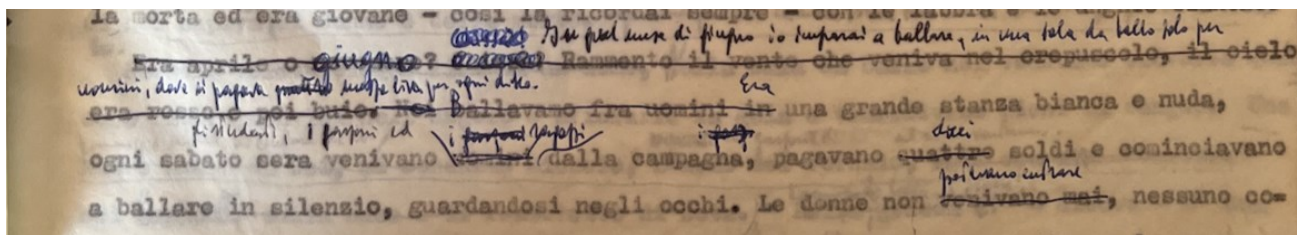 la morta ed era giovane - così la ricordai sempre - con le labbra e le
In quel mese di giugno io imparai a ballare, in una sala da ballo solo per
Era aprile o giugno? Rammento il vento che veniva nel crepuscolo, il cielo
uomini, dove si pagava mezza lira per ogni
Era
era rosso e poi buio. Noi Ballavamo fra uomini in una grande stanza bianca e nuda,
i garzoni ed i ragazzi
dieci
ogni sabato sera venivano uomini dalla campagna, pagavano quattro soldi e cominciavano
potevano entrare
a ballare in silenzio, guardandosi negli occhi. Le donne non venivano mai, nessuno co=